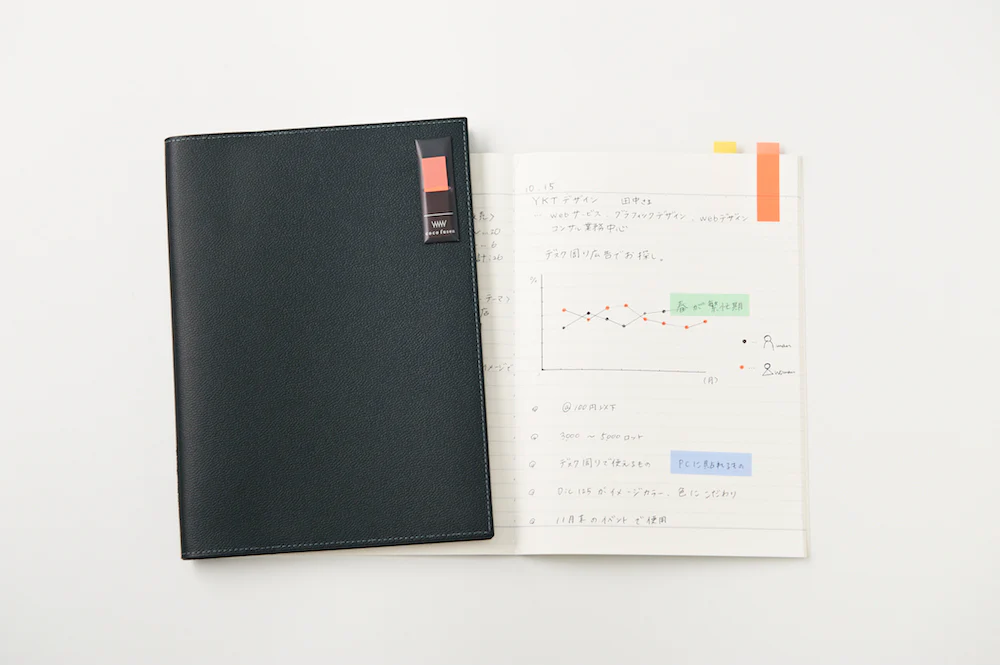 coco fusen
10.15
YKTデザイン 田中さま
webサービス、グラフィックデザイン、webデザイン
コンサル業務中心
デスク周り広告でお探し。
春が繁忙期
man
woman
(月)
@100円以下
3000 〜 5000ロット
デスク周りで使えるもの
PCに貼れるもの
DIC 125がイメージカラー、色にこだわり
11月末のイベントで使用